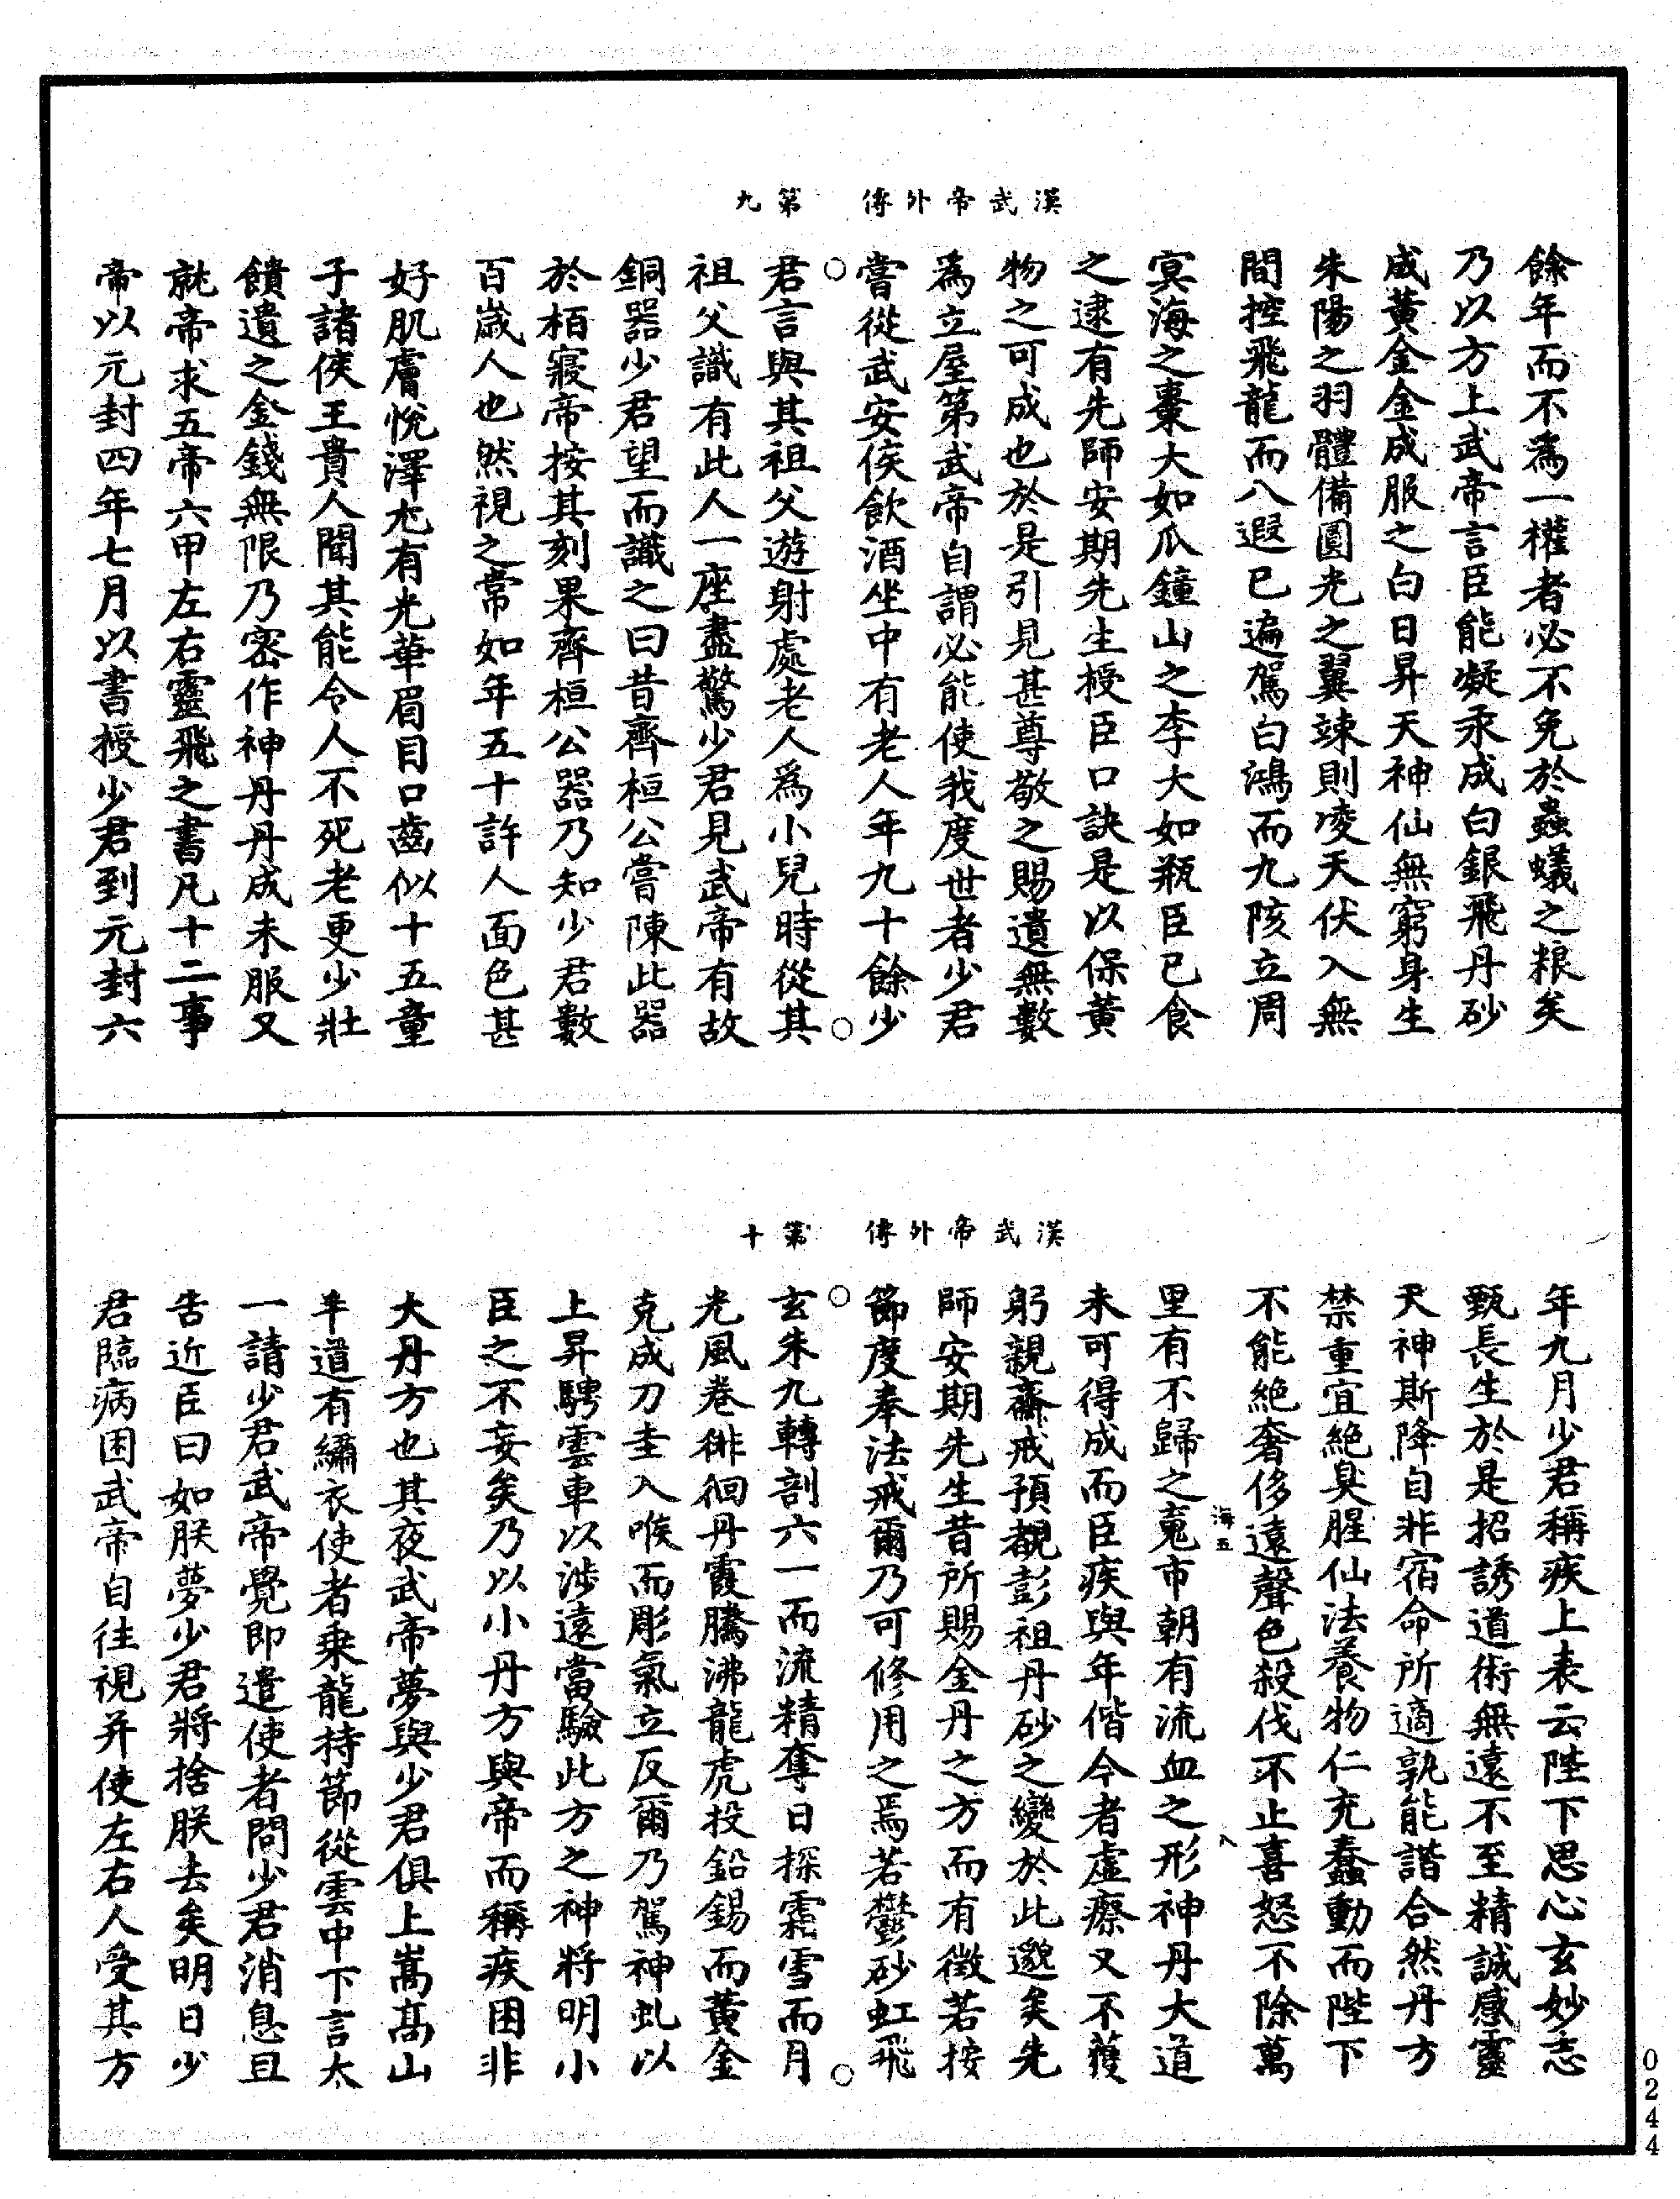 漢武帝外傳　第九
餘年而不為一權者必不免於蟲蟻之粮矣
乃以方上武帝言臣能凝汞成白銀飛丹砂
成黃金金成服之白日昇天神仙無窮身生
朱陽之羽體備圓光之翼竦則凌天伏入無
間控飛龍而八遐已遍駕白鴻而九陔立周
冥海之棗大如瓜鐘山之李大如瓶臣已食
之逮有先師安期先生授臣口訣是以保黃
物之可成也於是引見甚尊敬之賜遺無數
為立屋第武帝自謂必能使我度世者少君
嘗從武安侯飲酒坐中有老人年九十餘少
君言與其祖父遊射處老人為小兒時從其
祖父識有此人一座盡驚少君見武帝有故
銅器少君望而識之曰昔齊桓公嘗陳此器
於栢寢帝按其刻果齊桓公器乃知少君數
百歲人也然視之常如年五十許人面色甚
好肌膚悅澤尤有光華眉目口齒似十五童
子諸侯王貴人聞其能令人不死老更少壯
饋遺之金錢無限乃密作神丹丹成未服又
就帝求五帝六甲左右靈飛之書凡十二事
帝以元封四年七月以書授少君到元封六
漢武帝外傳　第十
年九月少君稱疾上表云陛下思心玄妙志
甄長生於是招誘道術無遠不至精誠感靈
天神斯降自非宿命所適孰能諧合然丹方
禁重宜絕臭腥仙法養物仁充蠢動而陛下
不能絕奢侈遠聲色殺伐不止喜怒不除萬
海五　八
里有不歸之䰟市朝有流血之形神丹大道
未可得成而臣疾與年偕今者虛瘵又不獲
躬親齋戒預覩彭祖丹砂之變於此邈矣先
師安期先生昔所賜金丹之方而有徵若按
節度奉法戒爾乃可修用之焉若鬱砂虹飛
玄朱九轉剖六一而流精奪日探霜雪而月
光風卷徘徊丹霞騰沸龍虎投鉛錫而黃金
克成刀圭入喉而彫氣立反爾乃駕神虬以
上昇騁雲車以涉遠當驗此方之神將明小
臣之不妄矣乃以小丹方與帝而稱疾困非
大丹方也其夜武帝夢與少君俱上嵩高山
半道有繡衣使者乘龍持節從雲中下言太
一請少君武帝覺即遣使者問少君消息且
告近臣曰如朕夢少君將捨朕去矣明日少
君臨病困武帝自往視并使左右人受其方
0244